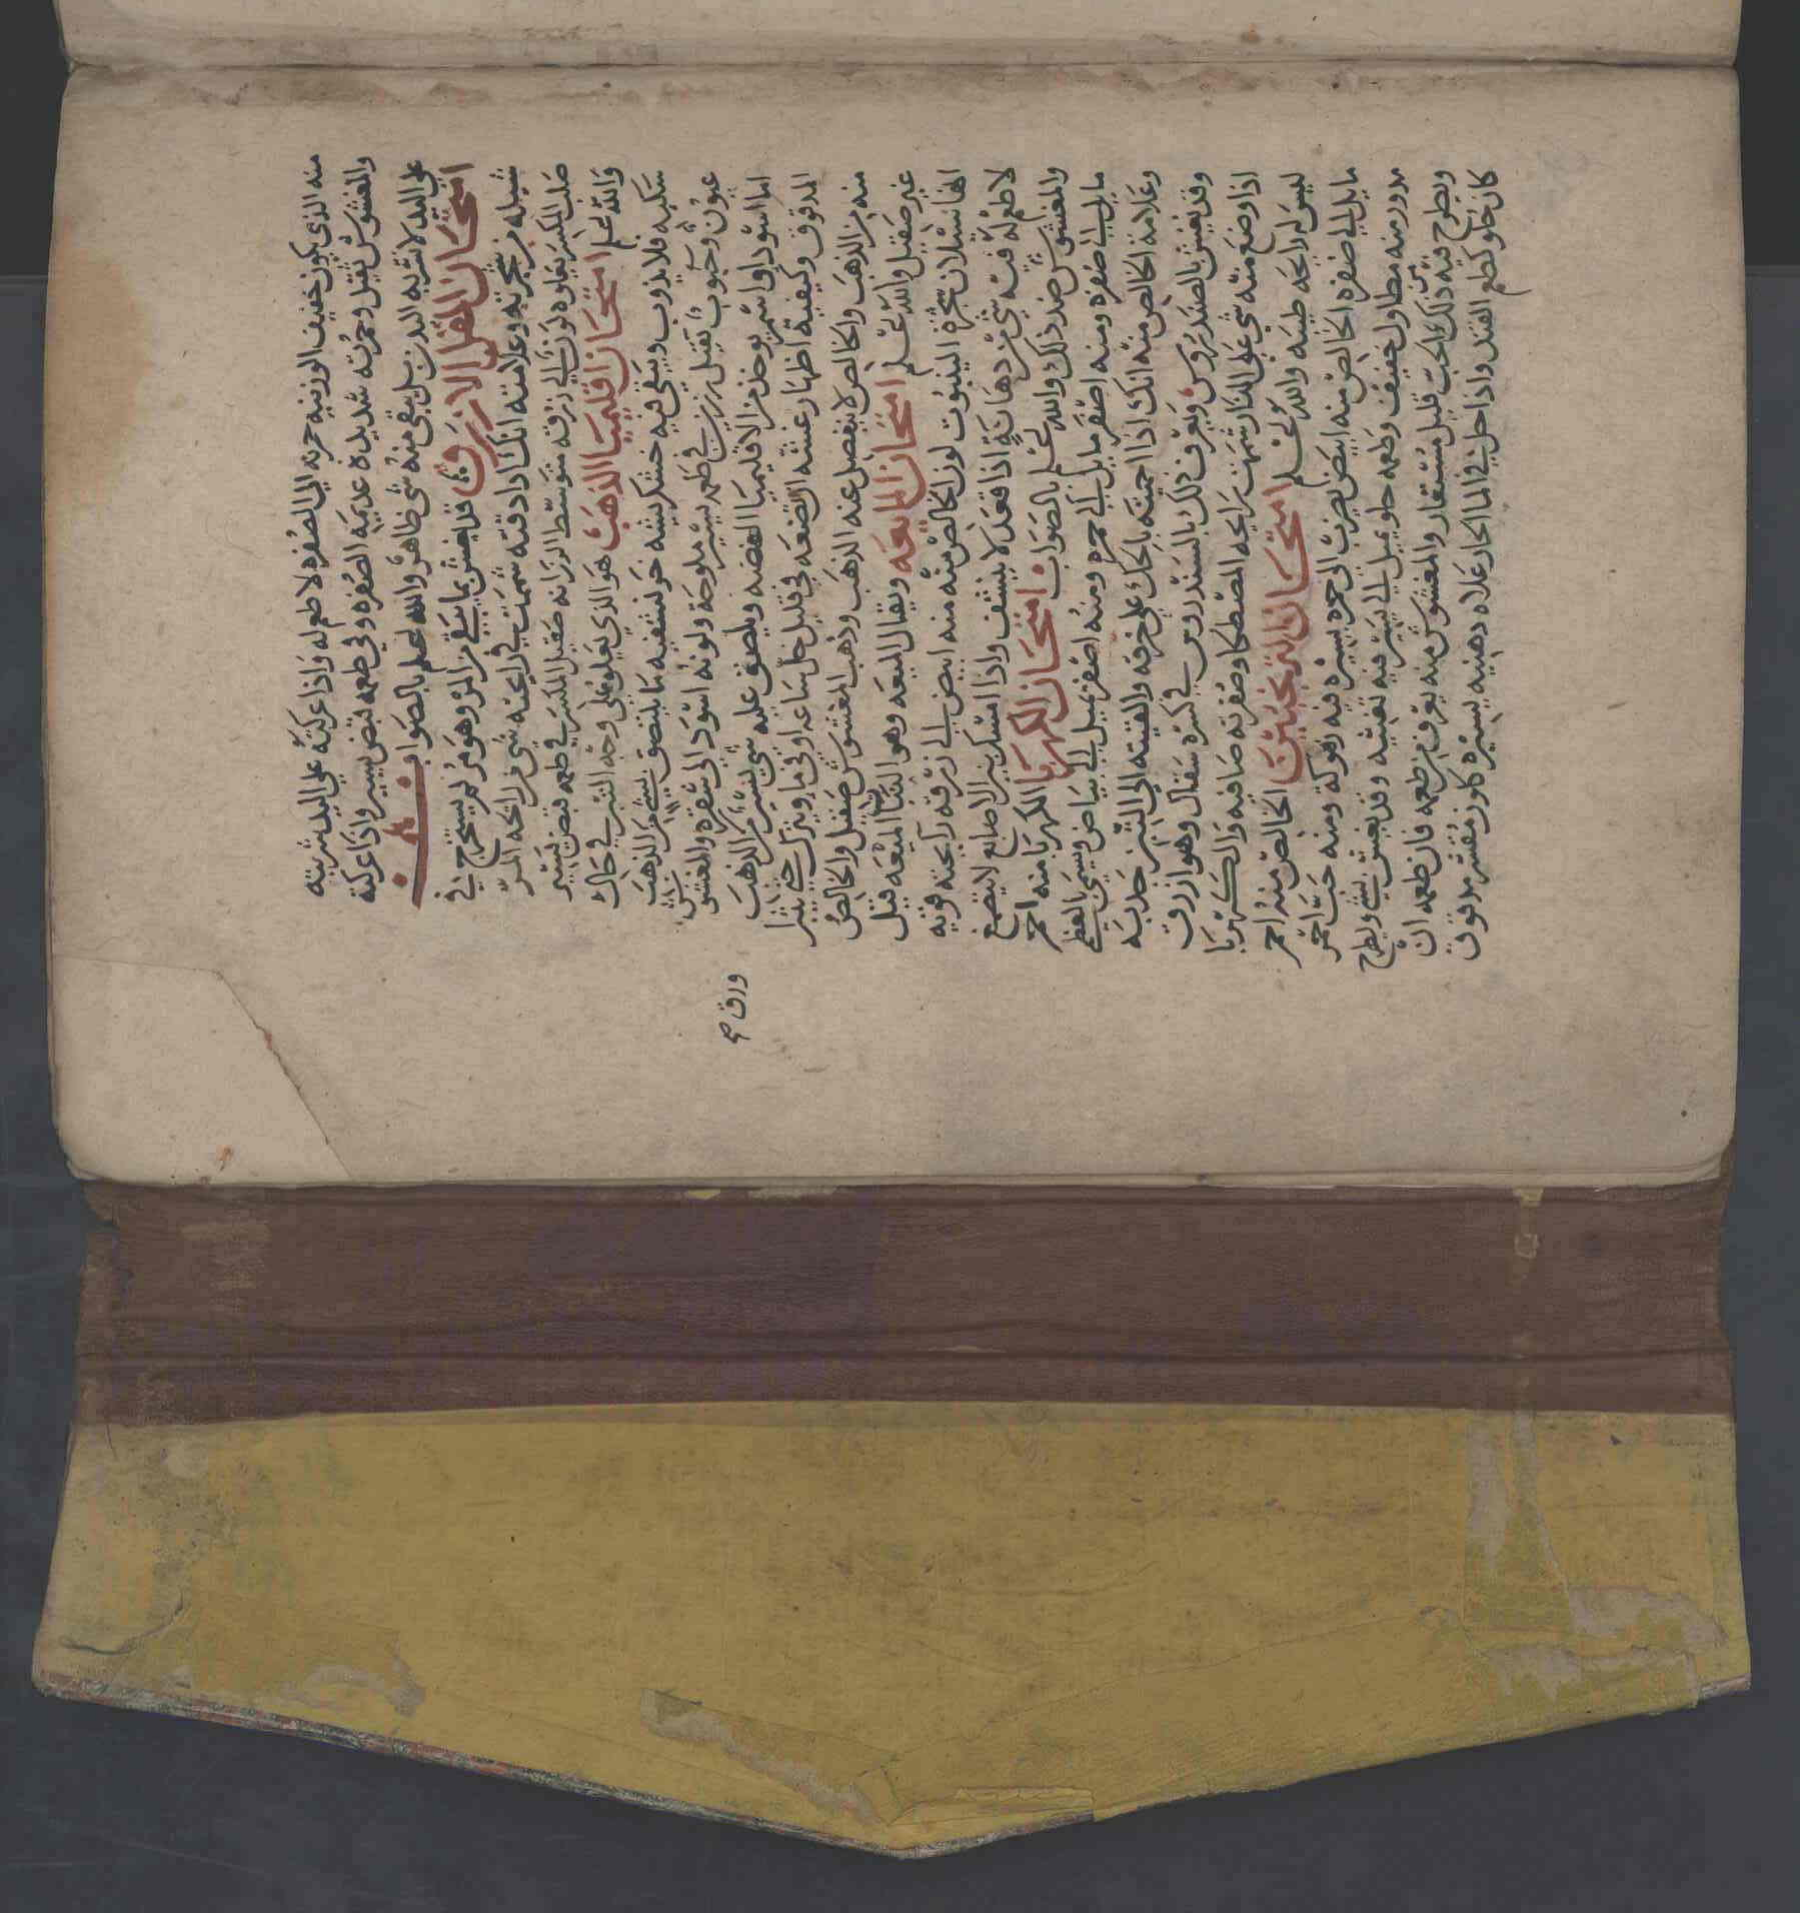 منه الذي يكون خفيف الوزنيه حمرته الي الصفره لا طعم له واذا عركته علي اليد شربته
والمغشوش ثقيل وحمرته شديده عديمة الصفره وفي طعمه قبض يسير واذا عركته
علي اليد لا تشربه اليد بل يبقي منه شي ظاهر والله اعلم بالصواب
امتحان المقل الازرق قد يغش بما يبقي من المر وهو مر لم يستخرج في
شيله من شجرته وعلامته انك اذا دقته شممت في رايحته شي من رايحة المر
صلب المكسر يعلوه لون الي زرقه متوسط الرزانه صقيل المكسر في طعمه قبض يسير
والله اعلم امتحان اقليميا الذهب هو الذي يعلو علي وجه التبر في حال
سكبه فلا يذوب ويبقي فيه خشكريشه خو تشفيه ما يلتصق بشي من الذهب
عيون وحبوب ثقيل رزين في طعمه يسير ملوحة ولونه اسود الي شقره والمغشوش
اما اسود او اسمر يوخذ من الاقليميا الفضه ويلصق عليه شي يسير من الذهب
المدقوق وكيفية اظهار غشه ان تضعه في قليل خل ساعه او في ما ويترك حتي يتبرا
منه من الذهب والخالص لا ينفصل عنه الذهب وذهب المغشوش صقيل والخالص
غير صقيل والله اعلم امتحان المايعه ويقال الميعه وهو اللبنا الميعه قيل
انها تسلان شجرة الينبوت لون الخالص منه منه ابيض الي زرقه رايحته قويه
لا طعم له فيه شي من دهانة اذا قعد لا ينشف واذا امسك بين الاصابع لا يتصمغ
والمغشوش ضد ذلك والله اعلم بالصواب امتحان الكهربا الكهربا منه احمر
مايل الي صفره ومنه اصفر مايل الي حمره ومنه اصفر يميل الي بياض ويسمي بالعظمي
وعلامة الخالص منه انك اذا احميته بالحك علي خرقه والقيته الي التبن جذبه
وقد يغش بالصندروس ويعرف ذلك بالسندروس في كسره سقال وهو ازرق
اذا وضع منه شي علي النار شمت رايحة المصطكا وصفرته صافيه والكهربا
ليس له رايحه طيبه والله اعلم امتحان الترنجبين الخالص منه احمر
مايل الي صفره الخالص منه ابيض يضرب الي حمره يسيره فيه زهوكة ومنه حب احمر
مدور منه مطاول خفيف وطعمه حلو يميل الي اليسير فيه تغثيه وقد يغش بشي ويطرح
ويطرح فيه ذلك الحب قليل مستعار والمغشوش منه يعرف من طعمه فان طعمه ان
كان حلو كطعم القند واذا حل في الما الحار علاه دهنيه يسيره كلوز مقشر مدقوق
ورق